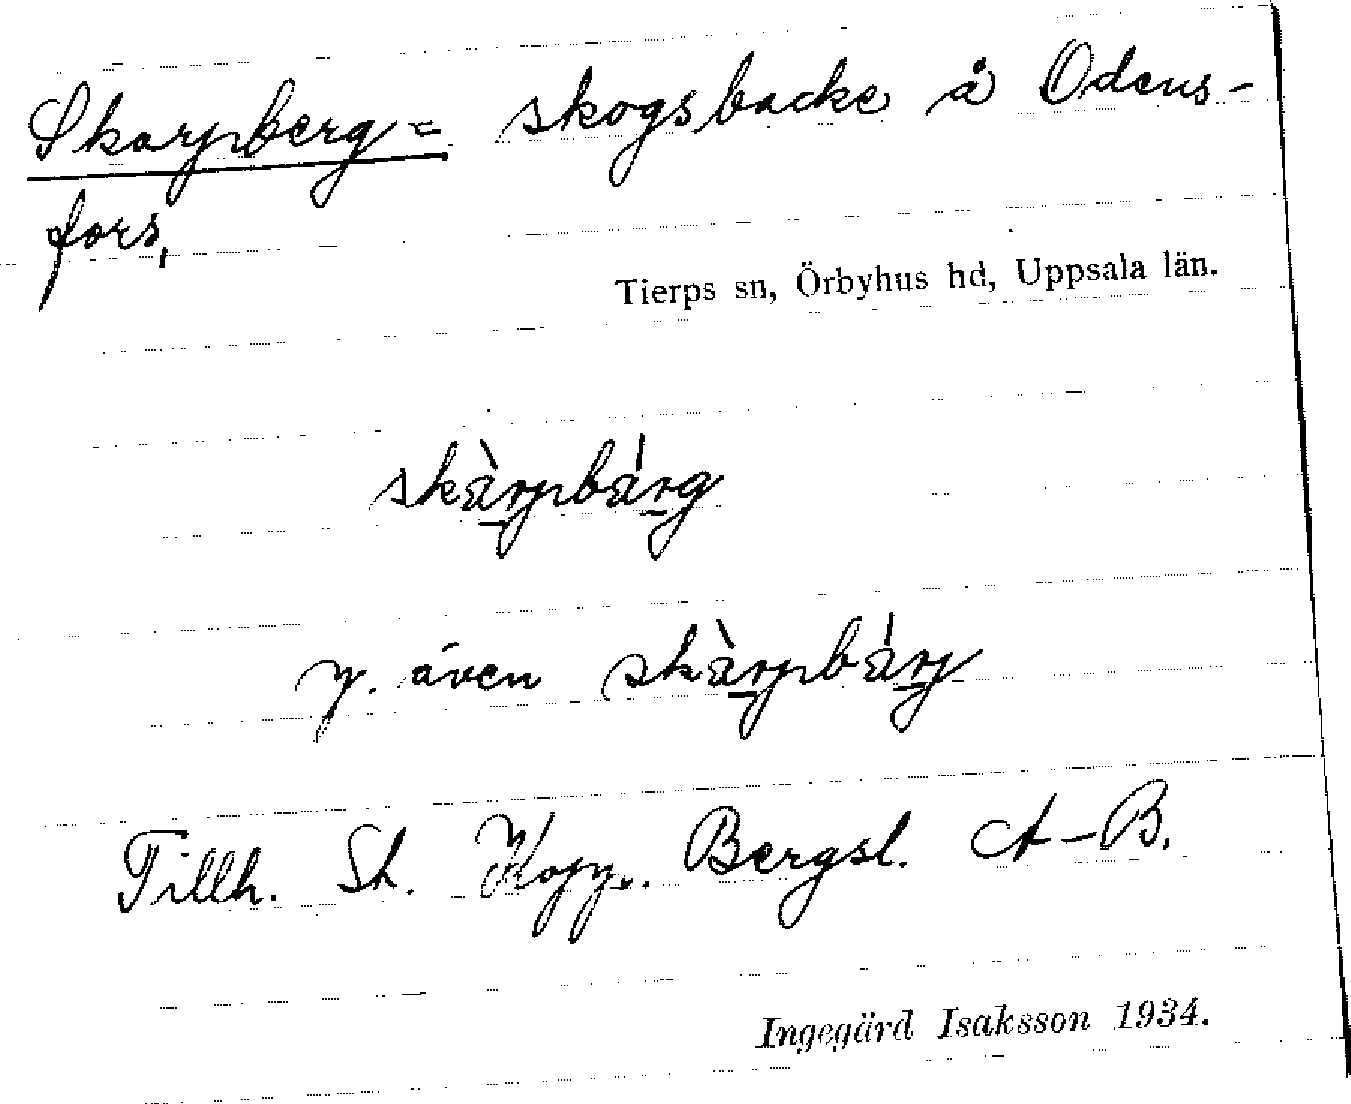 Skarpberg = skogsbacke å Odens-
fors,
Tierps sn, Örbyhus hd, Uppsala län.
skàrpbárg
y. även skàrpbárj
Tillh. St. Kopp. Bergsl. A-B.
Ingegärd Isaksson 1934.